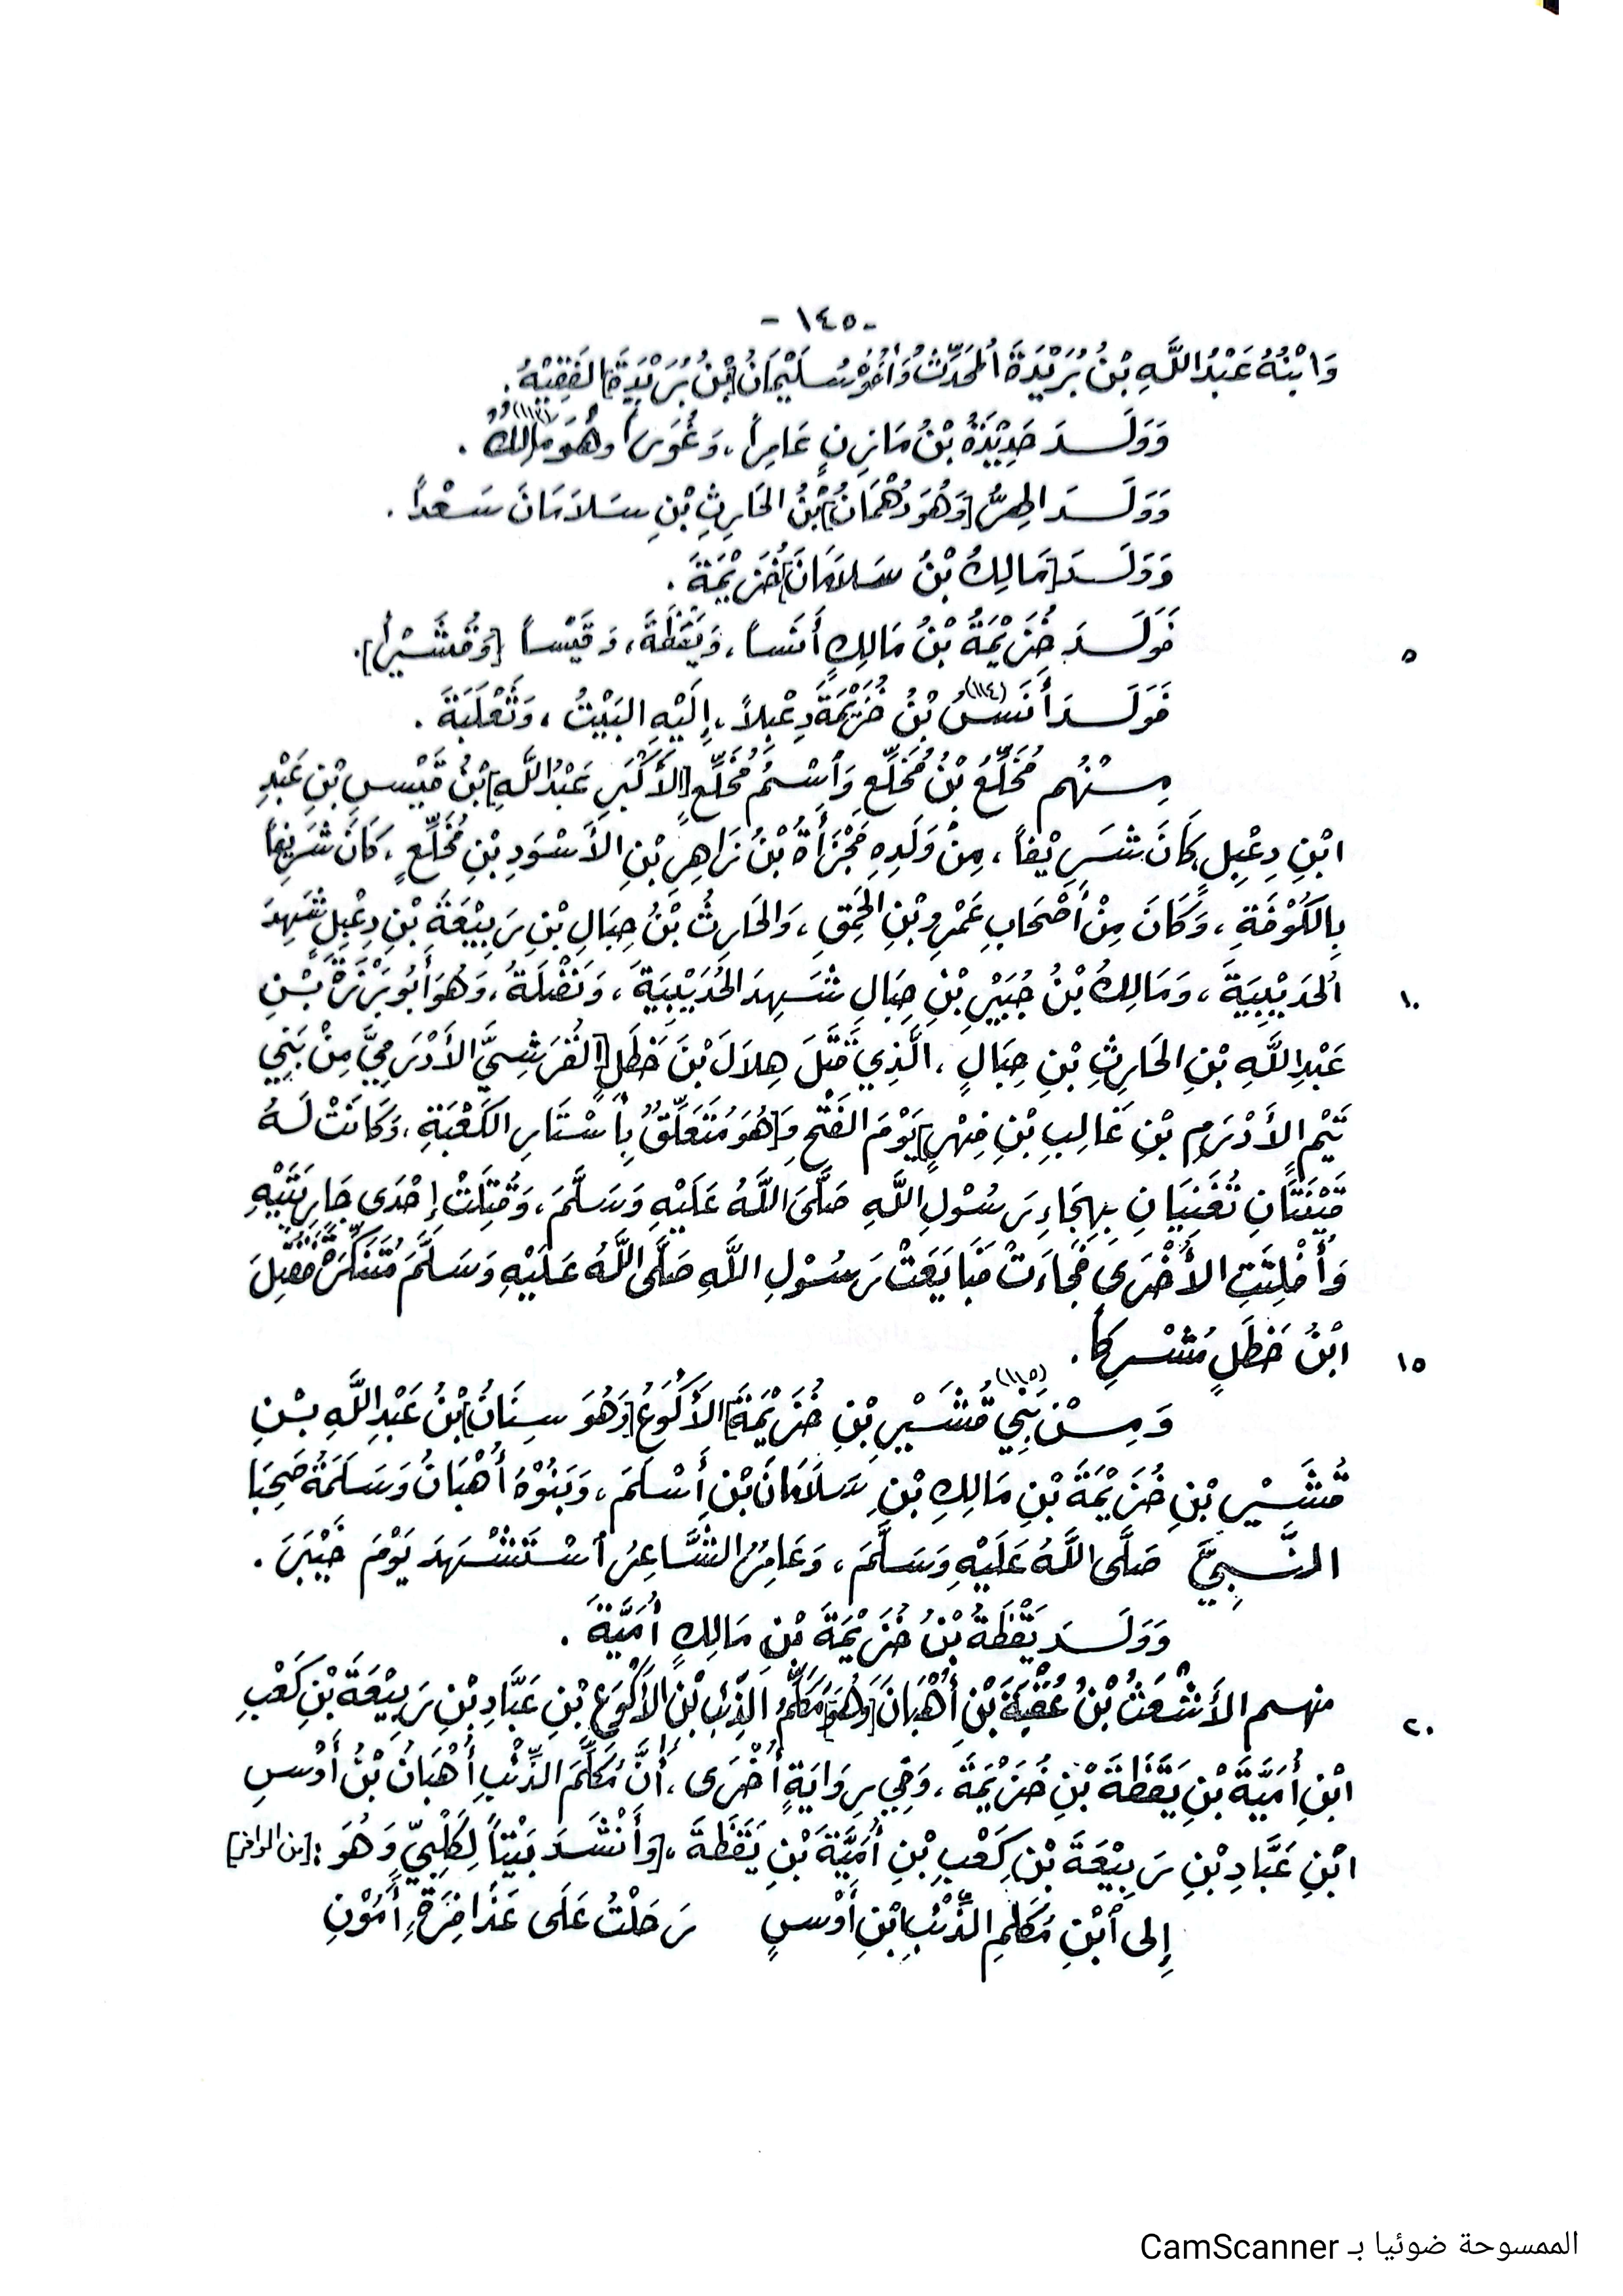 - ١٤٥ -
وَابْنُهُ عَبْدُ اللَّهِ بْنُ بُرَيْدَةَ المُحَدِّثُ وَأَخُوْهُ سُلَيْمَانُ [بْنُ بُرَيْدَةَ] الفَقِيْهُ.
وَوَلَـدَ حَدِيْدَةُ بْنُ مَازِنٍ عَامِراً، وَغُوَىً وهُوَ مَالِكٌ (١١٣).
وَوَلَـدَ الهِرُّ [وَهُوَ دُهْمَانُ] بْنُ الحَارِثِ بْنِ سَلاَمَانَ سَعْداً.
وَوَلَـدَ [مَالِكُ بْنُ سَلاَمَانَ] خُزَيْمَةَ.
٥ فَوَلَـدَ خُزَيْمَةُ بْنُ مَالِكٍ أَنَساً، وَيَقَظَةَ، وَقَيْساً [وَقُشَيْراً].
فَوَلَـدَ أَنَسُ (١١٤) بْنُ خُزَيْمَةَ دِعْبِلاً، إِلَيْهِ البَيْتُ، وَثَعْلَبَةَ.
مِـنْهُم مُخَلِّعُ بْنُ مُخَلِّعٍ وَاسْمُ مُخَلِّعٍ [الأَكْبَرِ عَبْدُ اللَّهِ] بْنُ قَيْسِ بْنِ عَبْدِ
ابْنِ دِعْبِلٍ كَانَ شَرِيْفاً، مِنْ وَلَدِهِ مَجْزَأَةُ بْنُ زَاهِرِ بْنِ الأَسْوَدِ بْنِ مُخَلِّعٍ، كَانَ شَرِيفاً
بِالكُوْفَةِ، وَكَانَ مِنْ أَصْحَابِ عَمْرِو بْنِ الحَمِقِ، وَالحَارِثُ بْنُ حِبَالِ بْنِ رَبِيْعَةَ بْنِ دِعْبِلٍ شَهِدَ
١٠ الحُدَيْبِيَةَ، وَمَالِكُ بْنُ جُبَيْرِ بْنِ حِبَالٍ شَهِدَ الحُدَيْبِيَةَ، وَنَضْلَةُ، وَهُوَ أَبُو بَرْزَةَ بْنِ
عَبْدِ اللَّهِ بْنِ الحَارِثِ بْنِ حِبَالٍ، الَّذِي قَتَلَ هِلاَلَ بْنَ خَطَلٍ [القُرَشِيَّ الأَدْرَمِيَّ مِنْ بَنِي
تَيْمِ الأَدْرَمِ بْنِ غَالِبِ بْنِ فِهْرٍ] يَوْمَ الفَتْحِ وَ[هُوَ مُتَعَلِّقٌ] بِأَسْتَارِ الكَعْبَةِ، وَكَانَتْ لَهُ
قَيْنَتَانِ تُغَنِّيَانِ بِهِجَاءِ رَسُوْلِ اللَّهِ صَلَّى اللَّهُ عَلَيْهِ وَسَلَّمَ، وَقُتِلَتْ إِحْدَى جَارِيَتَيْهِ
وَأُفْلِتَتِ الأُخْرَى فَجَاءَتْ فَبَايَعَتْ رَسُوْلَ اللَّهِ صَلَّى اللَّهُ عَلَيْهِ وَسَلَّمَ مُتَنَكِّرَةً فَقُتِلَ
١٥ ابْنُ خَطَلٍ مُشْرِكاً.
وَمِـنْ بَنِي قُشَيْرِ (١١٥) بْنِ خُزَيْمَةَ [الأَكْوَعُ] [وَهُوَ سِنَانُ] بْنُ عَبْدِ اللَّهِ بْنِ
قُشَيْرِ بْنِ خُزَيْمَةَ بْنِ مَالِكِ بْنِ سَلاَمَانَ بْنِ أَسْلَمَ، وَبَنُوْهُ أُهْبَانُ وَسَلَمَةُ صَحِبَا
النَّبِيَّ صَلَّى اللَّهُ عَلَيْهِ وَسَلَّمَ، وَعَامِرُ الشَّاعِرُ اسْتَشْهَدَ يَوْمَ خَيْبَرَ.
وَوَلَـدَ يَقْظَةُ بْنُ خُزَيْمَةَ بْنِ مَالِكٍ أُمَيَّةَ.
٢٠ منهـم الأَشْعَثُ بْنُ عُقْبَةَ بْنِ أُهْبَانَ [وَهُوَ] مُكَلِّمُ الذِّئْبِ بْنِ الأَكْوَعِ بْنِ عَبَّادِ بْنِ رَبِيْعَةَ بْنِ كَعْبِ
ابْنِ أُمَيَّةَ بْنِ يَقَظَةَ بْنِ خُزَيْمَةَ، وَفِي رِوَايَةٍ أُخْرَى، أَنَّ مُكَلِّمَ الذِّئْبِ أُهْبَانُ بْنُ أَوْسِ
ابْنِ عَبَّادِ بْنِ رَبِيْعَةَ بْنِ كَعْبِ بْنِ أُمَيَّةَ بْنِ يَقَظَةَ، [وَأَنْشَدَ بَيْتاً لِكَلْبِيٍّ وَهُوَ: [من الوافر]
إِلى ابْنِ مُكَلِّمِ الذِّئْبِ ابْنِ أَوْسٍ رَحَلْتُ عَلَى عَذَافِرَةٍ أَمُوْنِ
الممسوحة ضوئيا بـ CamScanner